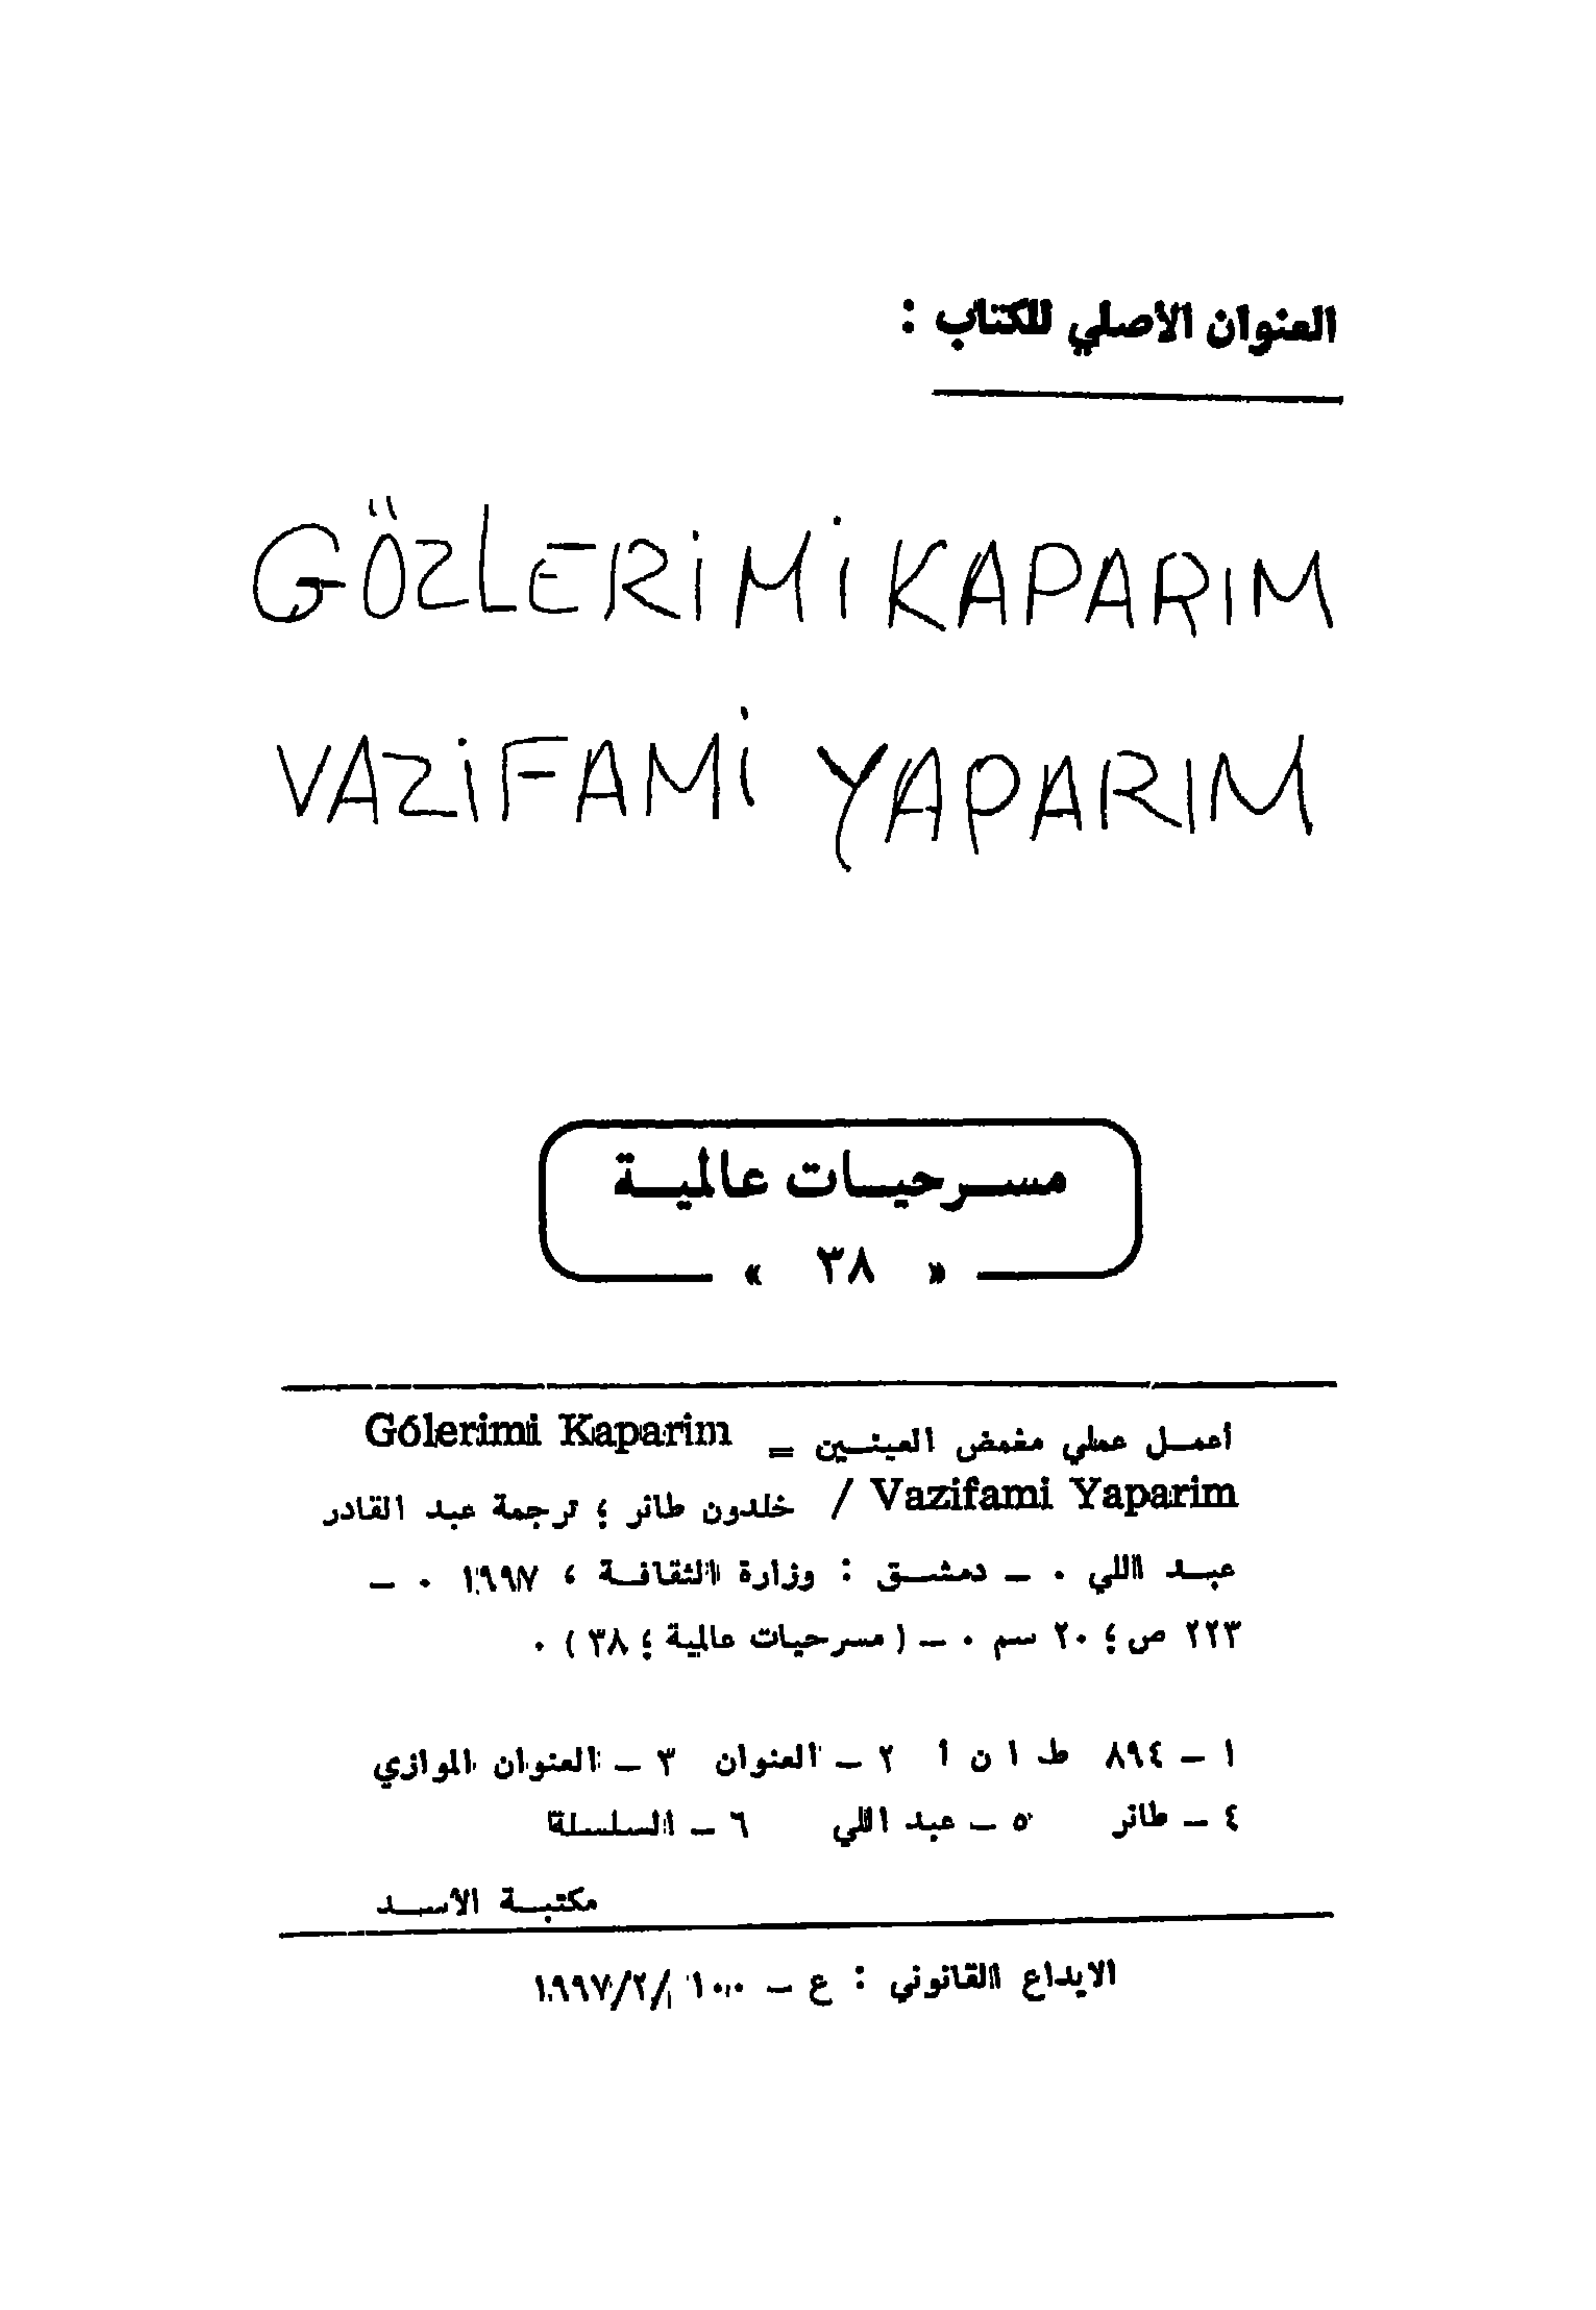 العنوان الأصلي للكتاب :
GÖZLERİMİ KAPARIM
VAZİFAMİ YAPARIM
مسرحيات عالمية
« ٣٨ »
أعمل عملي مغمض العينين = Gólerimi Kaparim
Vazifami Yaparim / خلدون طانر ؛ ترجمة عبد القادر
عبد اللي . – دمشق : وزارة الثقافة ، ١٩٩٧ . –
٢٢٣ ص ؛ ٢٠ سم . – ( مسرحيات عالمية ؛ ٣٨ ) .
١ – ٨٩٤ ط ا ن أ ٢ – العنوان ٣ – العنوان الموازي
٤ – طانر ٥ – عبد اللي ٦ – السلسلة
مكتبة الأسد
الايداع القانوني : ع – ١٠٠ /٢/ ١٩٩٧